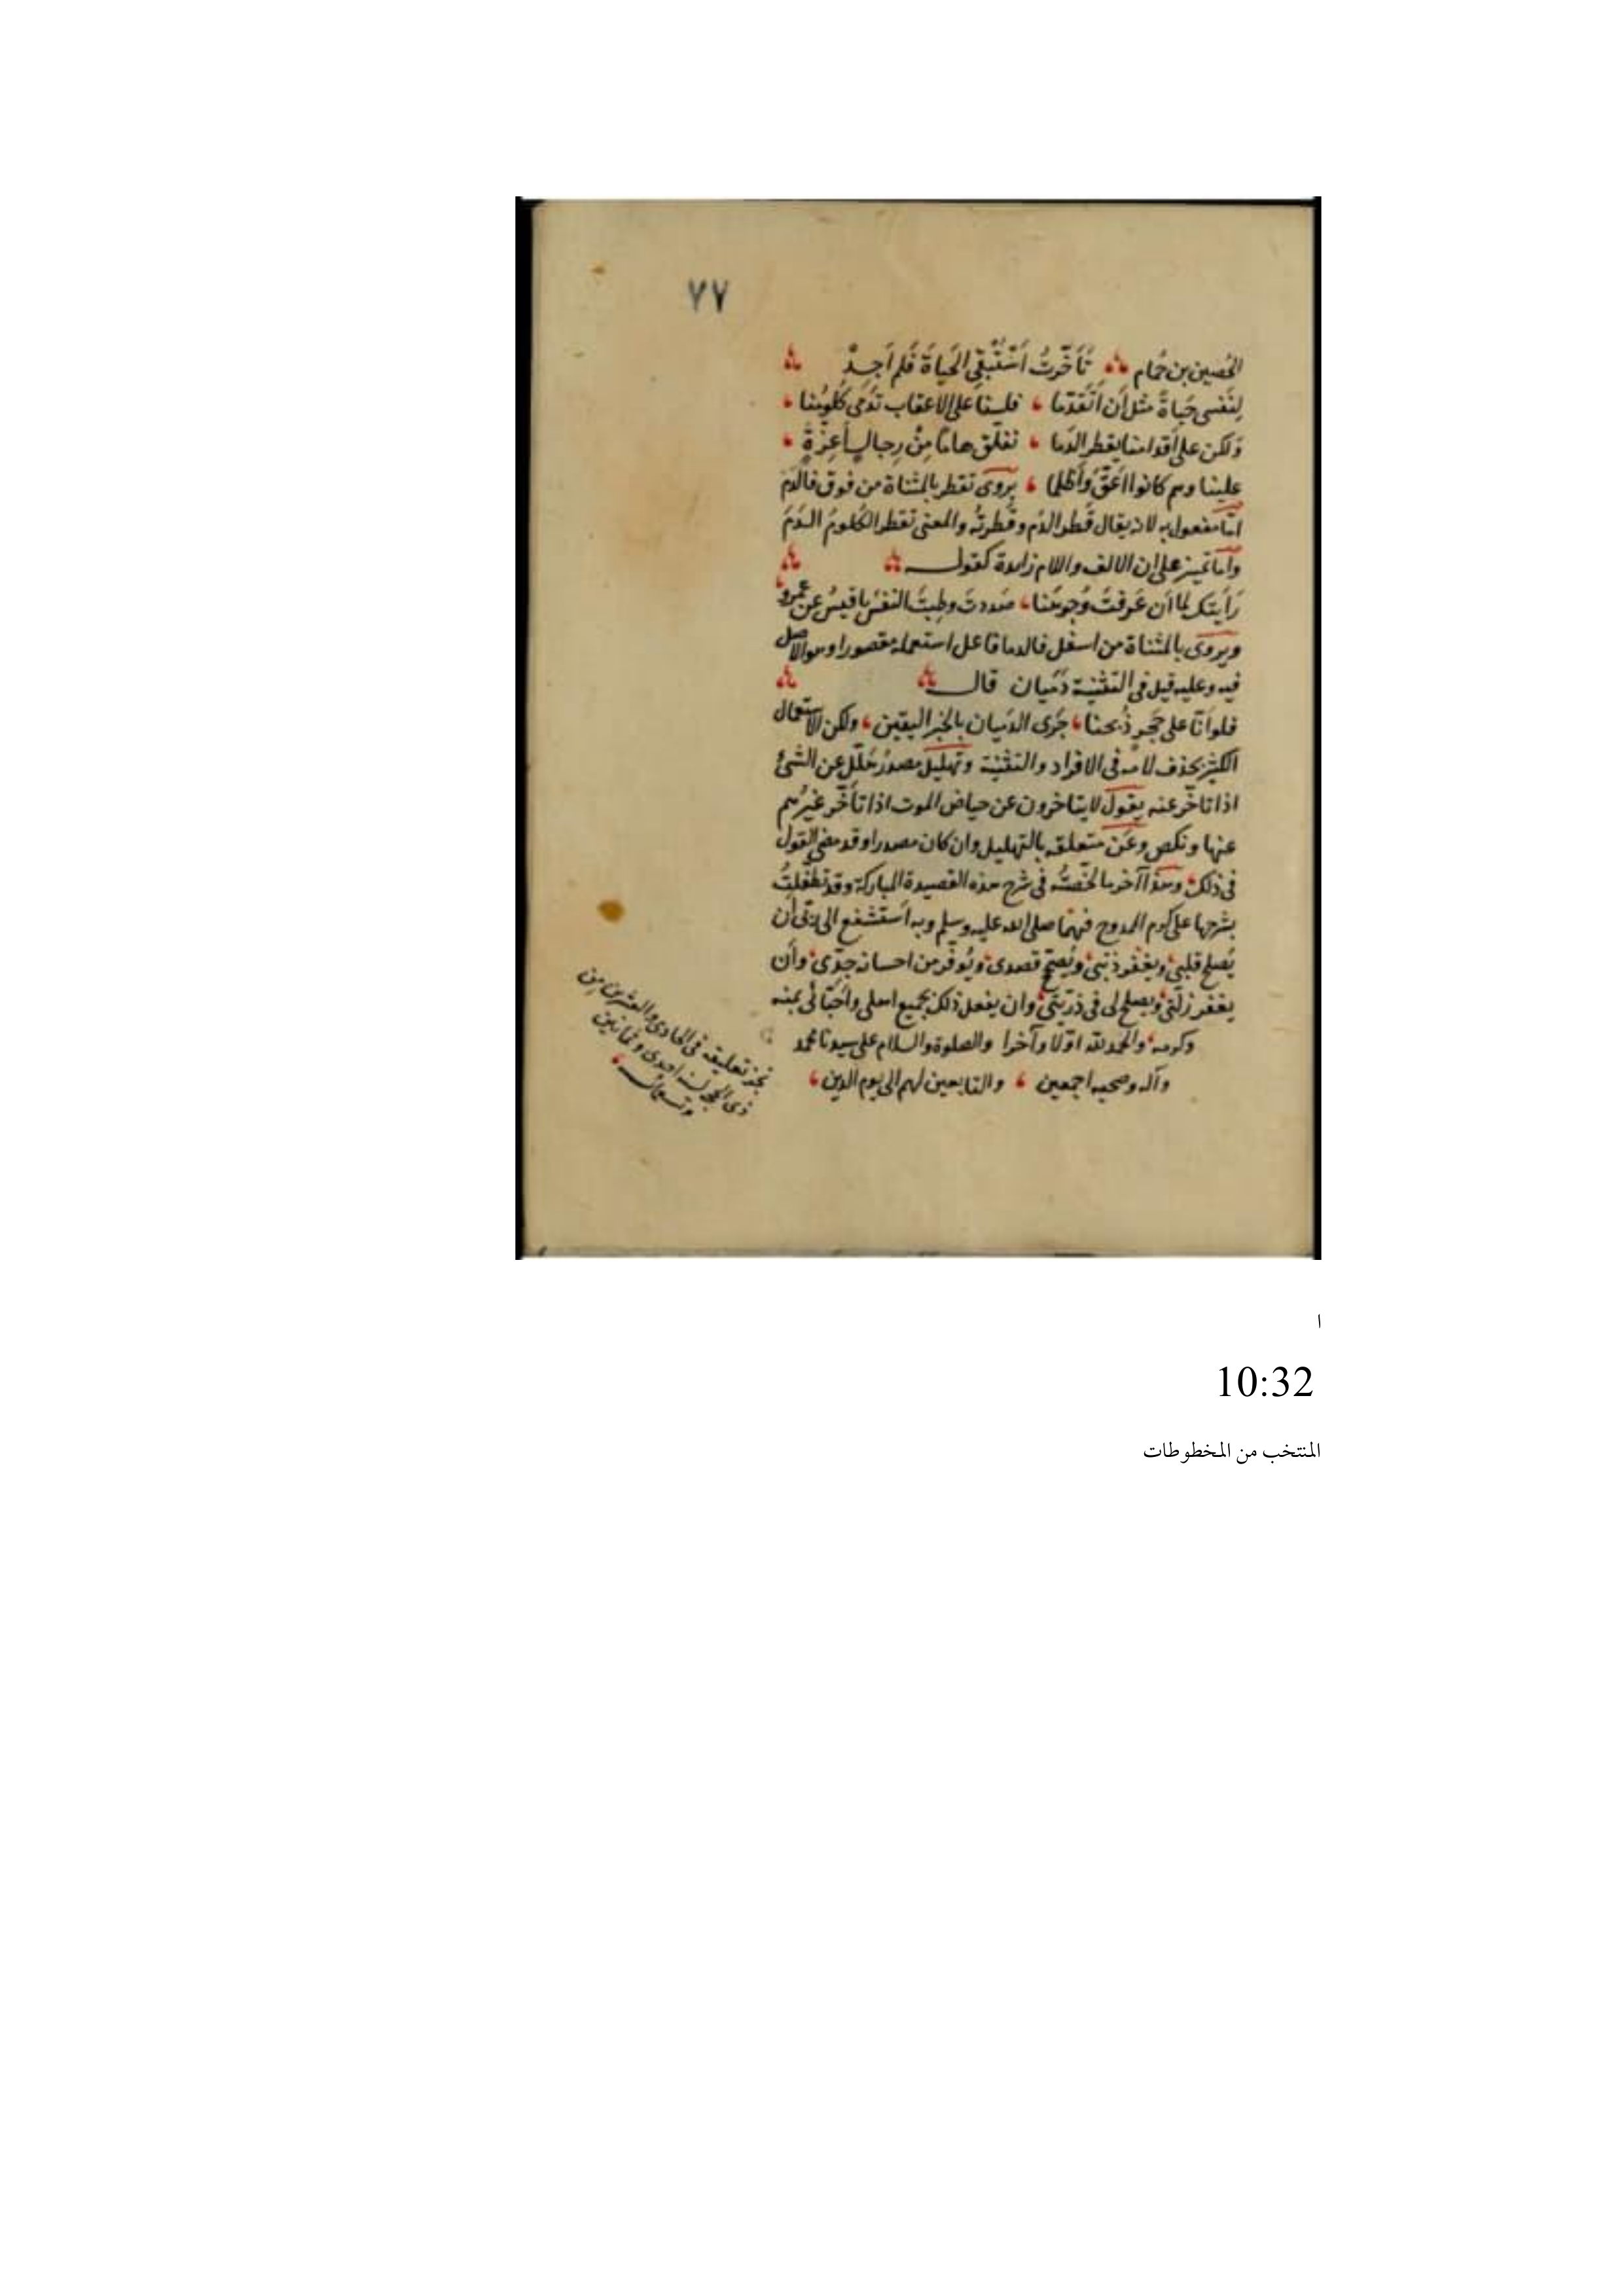 ٧٧
الحُصين بن حُمام تَأَخَّرتُ أَسْتَبْقِي الحَياةَ فَلم اَجِدْ
لِنَفسى حَياةً مثلَ أن أَتَقَدّما فلسنا على الاعقاب تَدْمَى كُلُومُنا
وَلكن على أَقدامنا يقطر الدّما نفلّق هامًا مِنْ رِجالٍ أَعِزّةٍ
علينا وهم كانوا اَعَقَّ وَأَظلما يروى تقطر بالمثناة من فوق فالدم
امّا مفعول به لانه يقال قَطر الدَم وقَطرتُه والمعنى تقطر الكُلومُ الدَمَ
وامّا تمييز على ان الالف واللام زايدة كقولـــه
رَأَيتك لما أَن عَرفتَ وُجوهَنا صَددتَ وطِبتَ النفسَ يا قيسُ عن عمرو
ويروى بالمثناة من اسفل فالدما فاعل استعمله مقصورا وهو الاصل
فيه وعليه قيل فى التثنية دَمَيان قالـــ
فلو اَنّا على حَجَرٍ ذُبحنا جَرى الدَميان بالخبر اليقين ولكن الاستعمال
الكثير بحذف لامه فى الافراد والتثنية وتهليل مصدرُ هَلّل عن الشئ
اذا تأخّر عنه يقول لا يتاخرون عن حياض الموت اذا تأخّر غيرُهم
عنها ونكص وعَن متعلقه بالتهليل وان كان مصدرا وقد مضى القول
فى ذلك وهذا آخر ما لخّصتُه فى شرح هذه القصيدة المباركة وقد تطفّلتُ
بشرحها على كرم الممدوح فيها صلى الله عليه وسلم وبه اَستشفع الى ربّى أن
يُصلح قلبى ويغفر ذَنبى ويُصحّح قصدى ويُوفّر من احسانه جدّى وأَن
يغفر زلّتى ويصلح لى فى ذرّيتى وان يفعل ذلك بجميع اهلى واحبّائى بمنه
وكرمه والحمد لله اوّلا وآخرا والصلوة والسلام على سيدنا محمد
وآله وصحبه اجمعين والتابعين لهم الى يوم الدين
نجز تعليقه فى الحادى والعشرين من
ذى الحجة لسنة احدى وثمانين
وتسعمائه
ا
10:32
المنتخب من المخطوطات